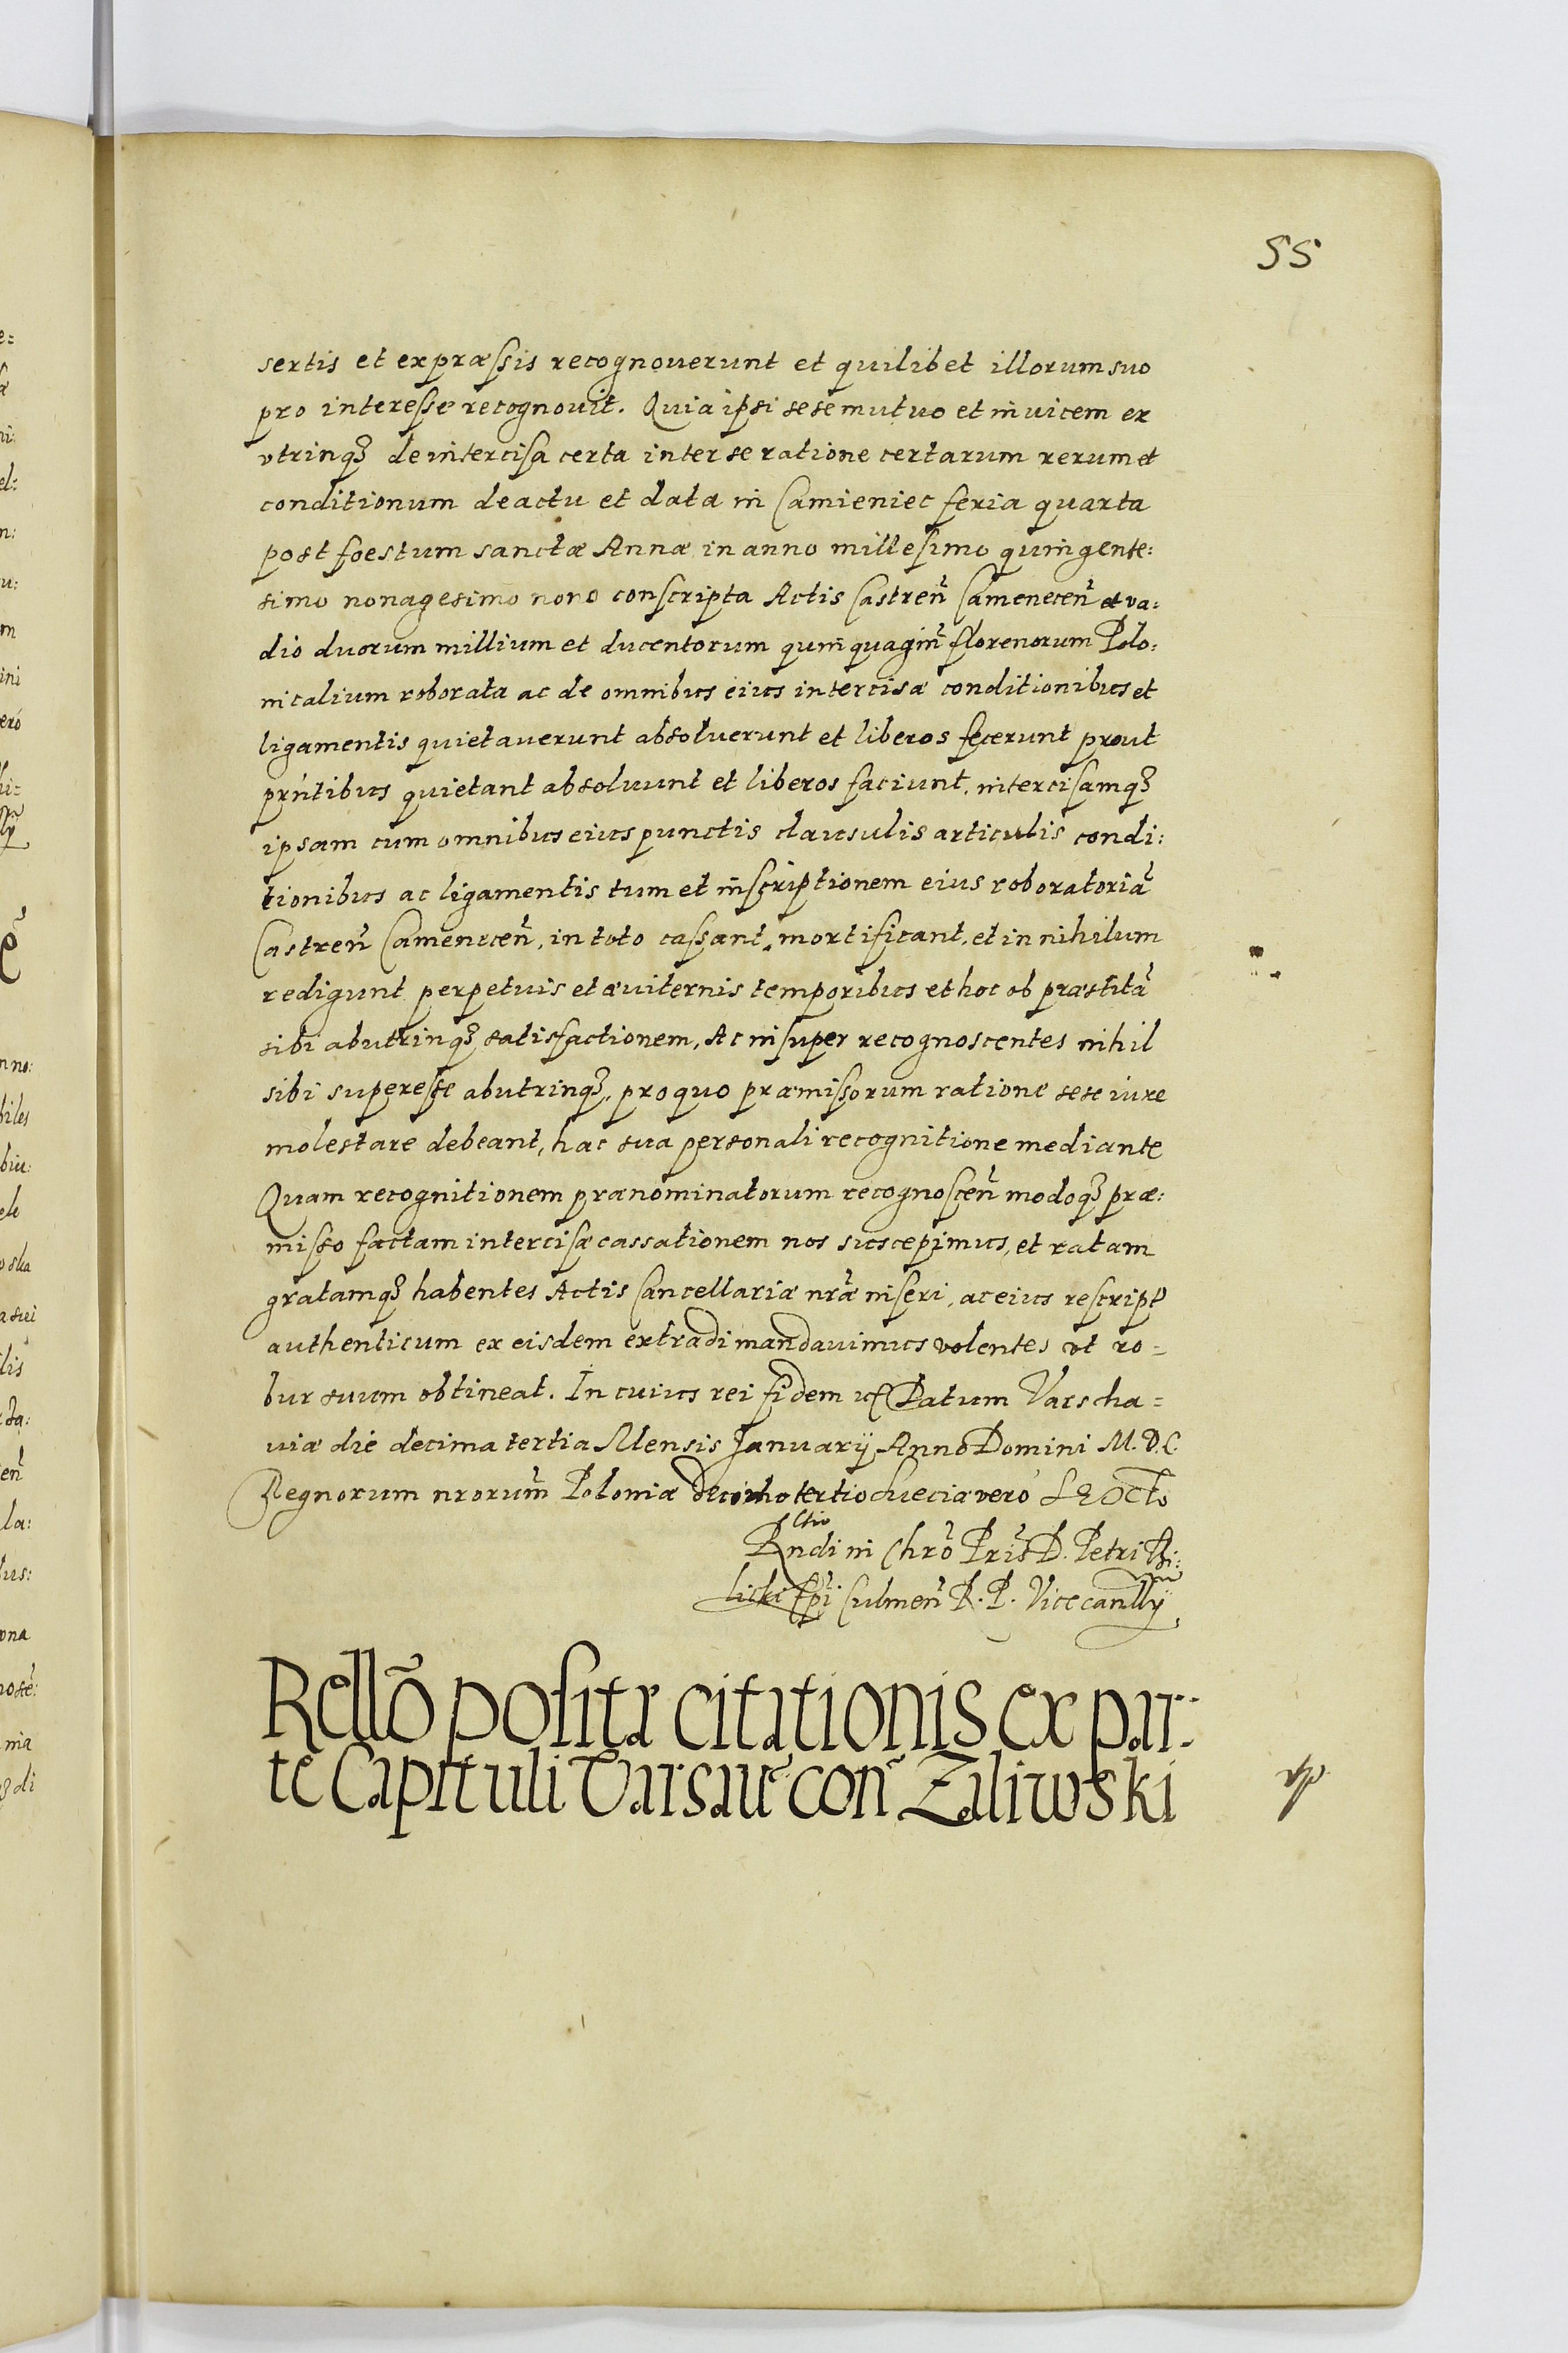 55
sertis et expræssis recognouerunt et quilibet illorum suo
pro interesse recognouit. Quia ipsi sese mutuo et inuicem ex
vtrinqȝ de intercisa certa inter se ratione certarum rerum et
conditionum de actu et data in Camieniec feria quarta
post foestum sanctæ Annæ in anno millesimo quingente:
simo nonagesimo nono conscripta Actis Castren̄ Camenecen̄ et va:
dio duorum millium et ducentorum quinquagin̄ florenorum Polo:
nicalium roborata ac de omnibus eius intercisæ conditionibus et
ligamentis quietauerunt absoluerunt et liberos fecerunt prout
prn̄tibus quietant absoluunt et liberos faciunt, intercisamqȝ
ipsam cum omnibus eius punctis clausulis articulis condi:
tionibus ac ligamentis tum et inscriptionem eius roboratoriā
Castren̄ Camenecen̄, in toto cassant, mortificant, et in nihilum
redigunt perpetuis et æuiternis temporibus et hoc ob præstitā
sibi abutrinqȝ satisfactionem, Ac insuper recognoscentes nihil
sibi superesse abutrinqȝ, pro quo præmissorum ratione sese iure
molestare debeant, hac sua personali recognitione mediante
Quam recognitionem prænominatorum recognoscen̄ modoqȝ præ:
misso factam intercisæ cassationem nos suscepimus, et ratam
gratamqȝ habentes Actis Cancellariæ nrā̄e inseri, ac eius rescript̄
authenticum ex eisdem extradi mandauimus volentes vt ro=
bur suum obtineat. In cuius rei fidem Datum Varscha=
uiæ die decima tertia Mensis January Anno Domini M.D.C
Regnorum nrorum̄ Poloniæ decimo tertio Sueciæ vero Octo
Rndi in Chrō Pris̄ D. Petri
Epī Culmen̄ R. P. Vicecanlly
Rellō posita citationis ex par:
te Capituli Varsauē con̄ Zaliwski